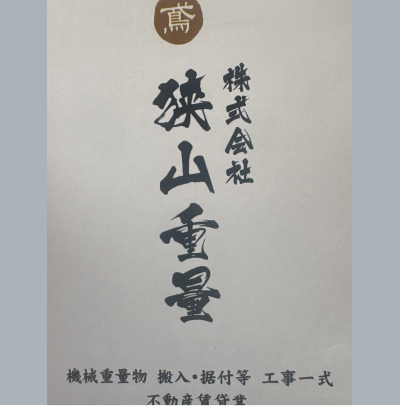 鳶
株式会社
狭山重量
機械重量物 搬入・据付等 工事一式
不動産賃貸業